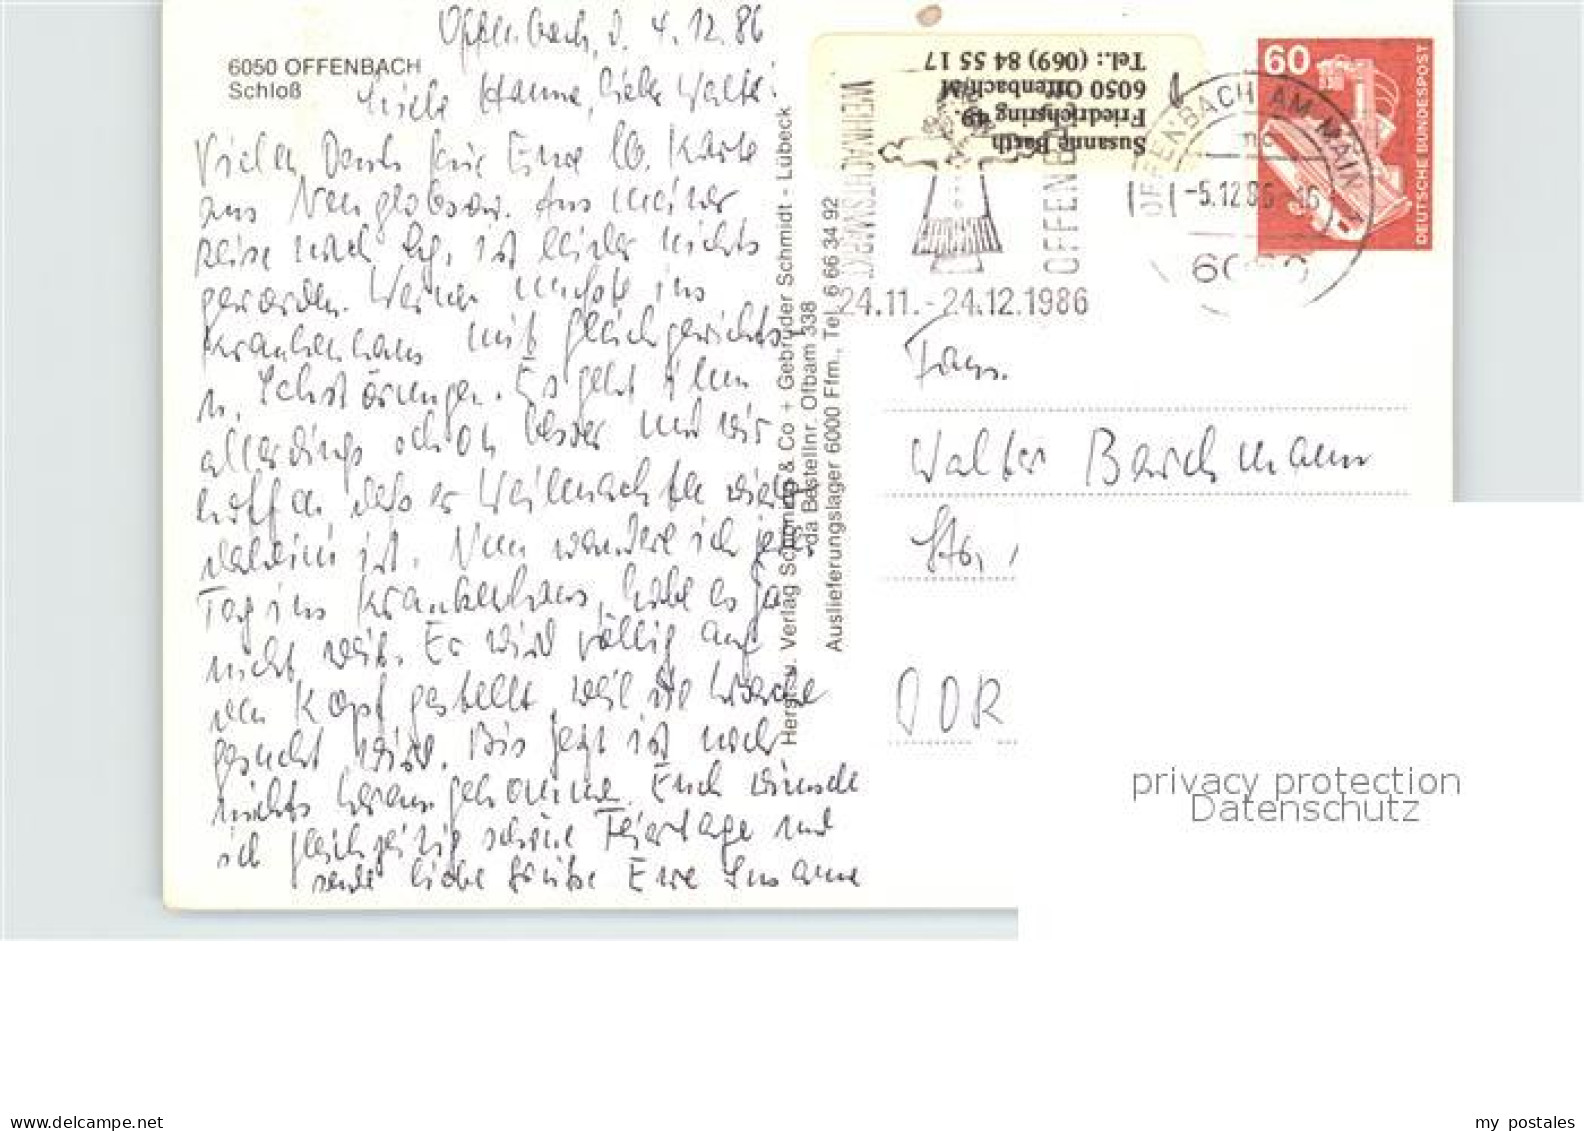 6050 OFFENBACH
Schloß
Offenbach, d. 4.12.86
Liebe Hanne, lieber Walter!
Vielen Dank für Eure lb. Karte
aus Neuglobsow. Aus meiner
Reise nach Lpg. ist leider nichts
geworden. Werner mußte ins
Krankenhaus mit Gleichgewichts-
u. Sehstörungen. Es geht ihm
allerdings schon besser und wir
hoffen, daß er Weihnachten wieder
daheim ist. Nun wandere ich jeden
Tag ins Krankenhaus, habe es ja
nicht weit. Er wird völlig auf
den Kopf gestellt, weil die Ursache
gesucht wird. Bis jetzt ist noch
nichts herausgekommen. Euch wünsche
ich gleichzeitig schöne Feiertage und
sende liebe Grüße Eure Susanne
Herst. u. Verlag Schöning & Co + Gebrüder Schmidt - Lübeck
da Bestellnr. Ofbam 338
Auslieferungslager 6000 Ffm., Tel. 6 66 34 92
Susanne Barth
Friedrichsring 49
6050 Offenbach/M
Tel.: (069) 84 55 17
WEIHNACHTSMARKT
OFFENBACH
24.11.-24.12.1986
OFFENBACH AM MAIN 1
-5.12.86-16
60
DEUTSCHE BUNDESPOST
Fam.
Walter
DDR
privacy protection
Datenschutz
www.delcampe.net
my postales